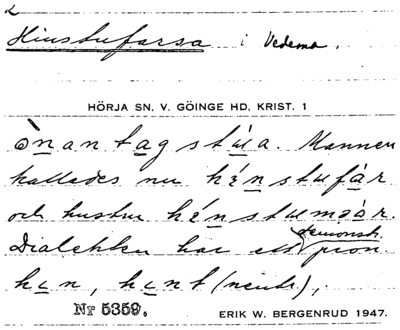 Hinstufarsa i Vedema.
HÖRJA SN. V. GÖINGE HD, KRIST. 1
ònantagstúa. Mannen
kallades nu hínstufár
och hustrun hínstumoár.
Dialekten har ett demonstr. pron
hin, hint (neutr.),
Nr 5359.
ERIK W. BERGENRUD 1947.